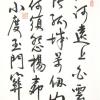 河遠上白雲
片孤城萬仞
何須怨楊柳春
不度玉門關